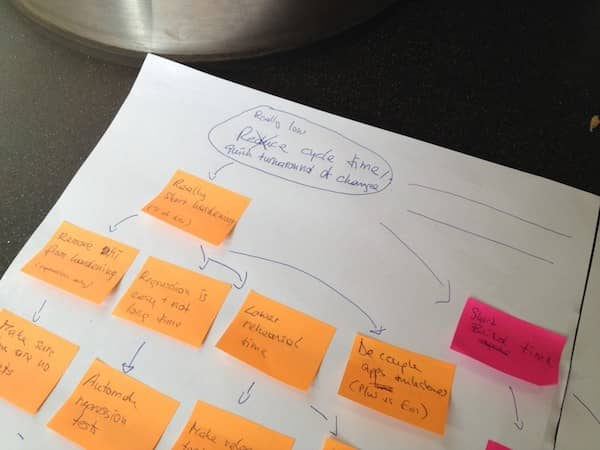 Really low
Reduce cycle time/
quick turnaround of changes
Really
short hardening
Remove
from hardening
Regression is
easy + not
long time
Lower
rehearsal
time
De couple
apps milestones
(PLW vs Em)
Short
Build time
Make sure
no
Automate
regression
tests
Make